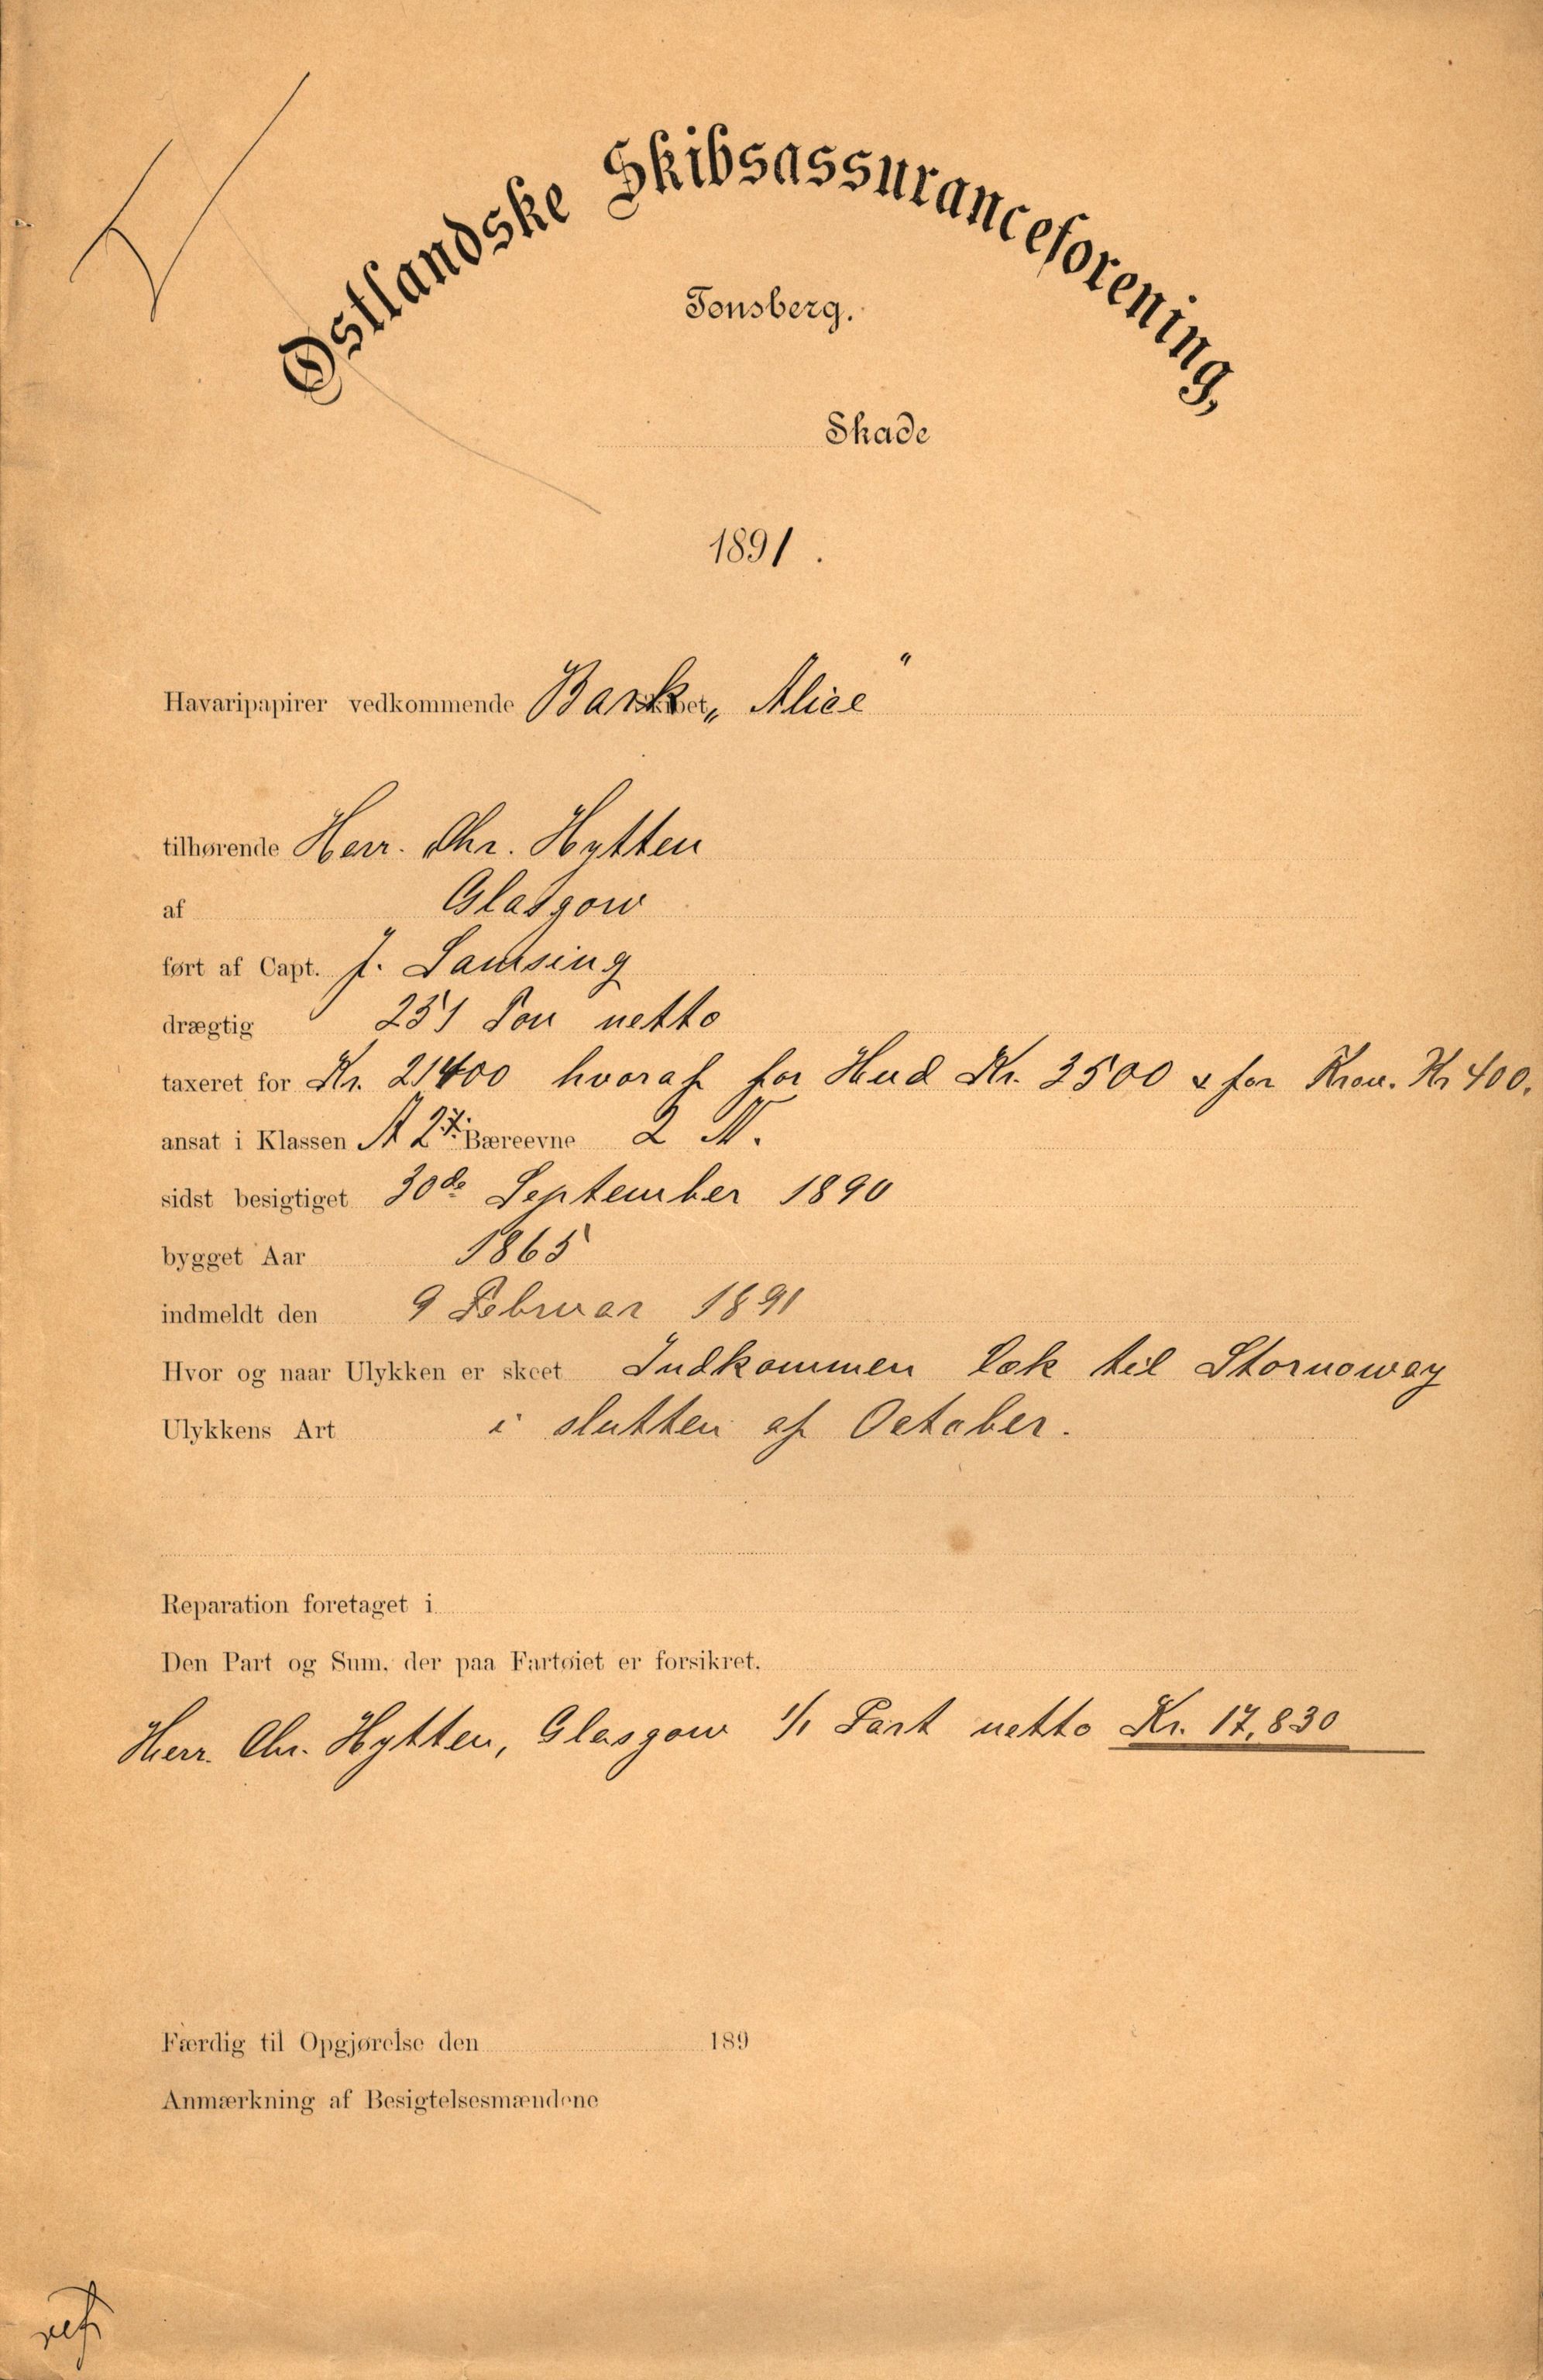 Østlandske Skibsassuranceforening,
Tønsberg.
Skade
1891.
Havaripapirer vedkommende Bark skibet „Alice"
tilhørende Herr. Chr. Hytten
af Glasgow
ført af Capt. J.
drægtig 251 Ton netto
taxeret for Kr. 21400 hvoraf for Hud Kr. 3500 & for Kron. Kr 400.
ansat i Klassen A 2 Bæreevne 2
sidst besigtiget 30de September 1890
bygget Aar 1865
indmeldt den 9 Februar 1891
Hvor og naar Ulykken er skeet Indkommen læk til Stornoway
Ulykkens Art i slutten af October.
Reparation foretaget i
Den Part og Sum, der paa Fartøiet er forsikret.
Herr. Chr. Hytten, Glasgow 1/1 Part netto Kr. 17,830
Færdig til Opgjørelse den 189
Anmærkning af Besigtelsesmændene